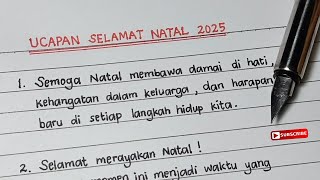 UCAPAN SELAMAT NATAL 2025
1. Semoga Natal membawa damai di hati,
kehangatan dalam keluarga, dan harapan
baru di setiap langkah hidup kita.
SUBSCRIBE
2. Selamat merayakan Natal!
momen ini menjadi waktu yang